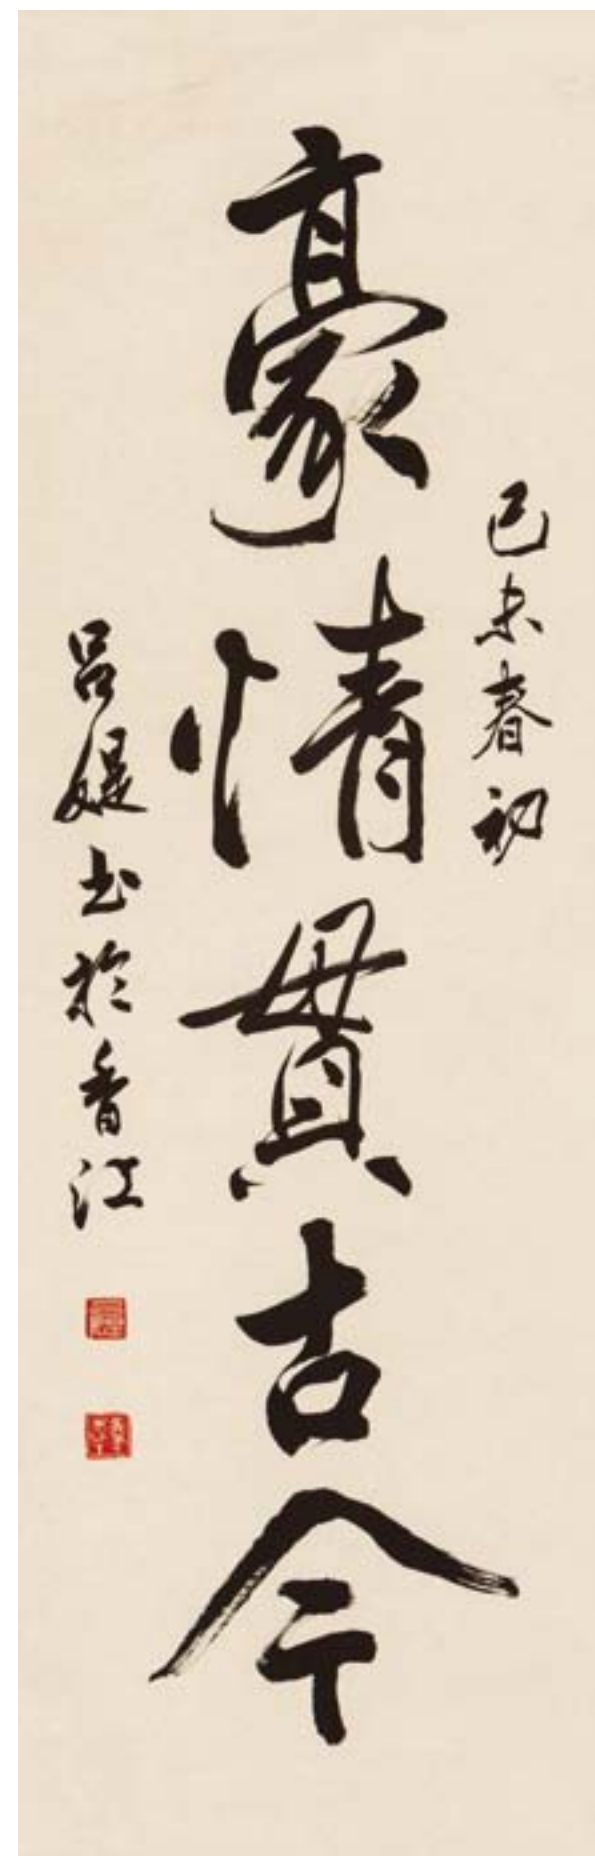 己未春初
豪情貫古今
呂媞书於香江